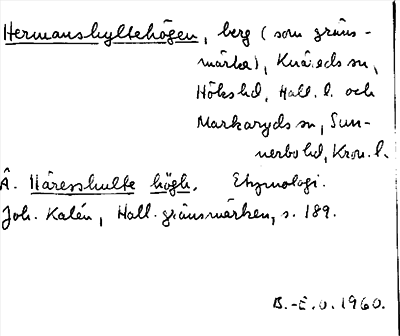 Hermanshyltehögen, berg (som gräns-
märke), Knäreds sn,
Höks hd, Hall. l. och
Markaryds sn, Sun-
nerbo hd, Kron. l.
Å. Håresshulte högh. Etymologi.
Joh. Kalén, Hall. gränsmärken, s. 189.
B.-E. O. 1960.